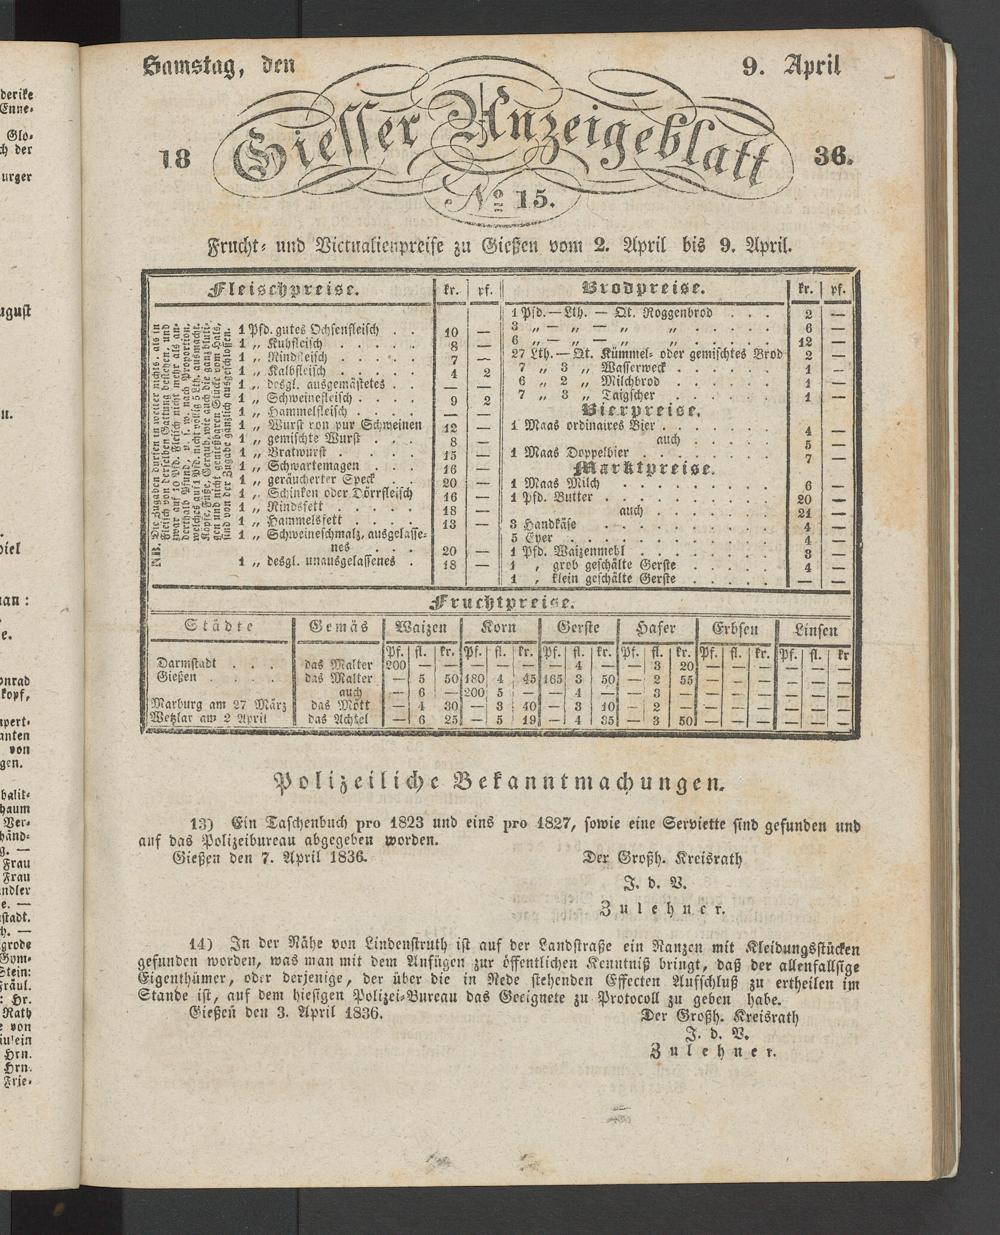 Samstag, den 9. April
18 Giesser Anzeigeblatt 36.
No 15.
Frucht- und Victualienpreise zu Gießen vom 2. April bis 9. April.
Fleischpreise. kr. pf.
1 Pfd. gutes Ochsenfleisch . . 10 —
1 „ Kuhfleisch . . . . . 8 —
1 „ Rindfleisch . . . . 7 —
1 „ Kalbfleisch . . . . . 4 2
1 „ desgl. ausgemästetes . . — —
1 „ Schweinefleisch . . . . 9 2
1 „ Hammelfleisch . . . . — —
1 „ Wurst von pur Schweinen 12 —
1 „ gemischte Wurst . . . 8 —
1 „ Bratwurst . . . . . 15 —
1 „ Schwartemagen . . . 16 —
1 „ geräucherter Speck . . 20 —
1 „ Schinken oder Dörrfleisch 16 —
1 „ Rindsfett . . . . . 18 —
1 „ Hammelsfett . . . . 13 —
1 „ Schweineschmalz, ausgelasse-
nes . . . 20 —
1 „ desgl. unausgelassenes . 18 —
NB. Die Zugaben dürfen in weiter nichts, als in
Fleisch von derselben Gattung bestehen, und
zwar auf 10 Pfd. Fleisch nicht mehr als an-
derthalb Pfund, u. s. w. nach Proportion,
welches auf 1 Pfd. nicht völlig 5 Lth. ausmacht.
Köpfe, Füße, Geraub, wie auch die ganz bluti-
gen und nicht genießbaren Stücke vom Hals,
sind von der Zugabe gänzlich ausgeschlossen.
Brodpreise. kr. pf.
1 Pfd. — Lth. — Qt. Roggenbrod . . . 2 —
3 „ — „ — „ „ . . . . . 6 —
6 „ — „ — „ „ . . . . . 12 —
27 Lth. — Qt. Kümmel- oder gemischtes Brod 2 —
7 „ 3 „ Wasserweck . . . . . . 1 —
6 „ 2 „ Milchbrod . . . . . . 1 —
7 „ 3 „ Taigscher . . . . . . 1 —
Bierpreise.
1 Maas ordinaires Bier . . . . . . . 4 —
auch . . . . . 5 —
1 Maas Doppelbier . . . . . . . . 7 —
Marktpreise.
1 Maas Milch . . . . . . . . . 6 —
1 Pfd. Butter . . . . . . . . . 20 —
auch . . . . . . . 21 —
3 Handkäse . . . . . . . . . 4 —
5 Eyer . . . . . . . . . . . 4 —
1 Pfd. Waizenmehl . . . . . . . 3 —
1 „ grob geschälte Gerste . . . . . 4 —
1 „ klein geschälte Gerste . . . . . — —
Fruchtpreise.
Städte Gemäs Waizen Korn Gerste Hafer Erbsen Linsen
Pf. fl. kr. Pf. fl. kr. Pf. fl. kr. Pf. fl. kr. Pf. fl. kr. Pf. fl. kr
Darmstadt . . . das Malter 200 — — — — — — 4 — — 3 20 — — — — — —
Gießen . . . . das Malter — 5 50 180 4 45 165 3 50 — 2 55 — — — — — —
auch — 6 — 200 5 — — 4 — — 3 — — — — — — —
Marburg am 27 März das Mött — 4 30 — 3 40 — 3 10 — 2 — — — — — — —
Wetzlar am 2 April das Achtel — 6 25 — 5 19 — 4 35 — 3 50 — — — — — —
Polizeiliche Bekanntmachungen.
13) Ein Taschenbuch pro 1823 und eins pro 1827, sowie eine Serviette sind gefunden und
auf das Polizeibureau abgegeben worden.
Gießen den 7. April 1836. Der Großh. Kreisrath
J. d. V.
Zulehner.
14) In der Nähe von Lindenstruth ist auf der Landstraße ein Ranzen mit Kleidungsstücken
gefunden worden, was man mit dem Anfügen zur öffentlichen Kenntniß bringt, daß der allenfallsige
Eigenthümer, oder derjenige, der über die in Rede stehenden Effecten Aufschluß zu ertheilen im
Stande ist, auf dem hiesigen Polizei-Bureau das Geeignete zu Protocoll zu geben habe.
Gießen den 3. April 1836. Der Großh. Kreisrath
J. d. V.
Zulehner.